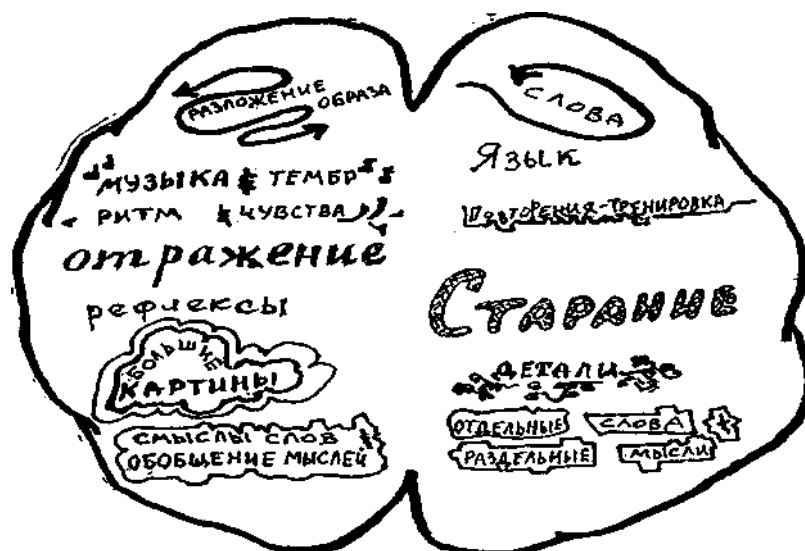 РАЗЛОЖЕНИЕ
ОБРАЗА
МУЗЫКА ТЕМБР
РИТМ ЧУВСТВА
отражение
рефлексы
БОЛЬШИЕ
КАРТИНЫ
СМЫСЛЫ СЛОВ
ОБОБЩЕНИЕ МЫСЛЕЙ
СЛОВА
Язык
ПОВТОРЕНИЯ-ТРЕНИРОВКА
СТАРАНИЕ
ДЕТАЛИ
ОТДЕЛЬНЫЕ СЛОВА +
РАЗДЕЛЬНЫЕ МЫСЛИ